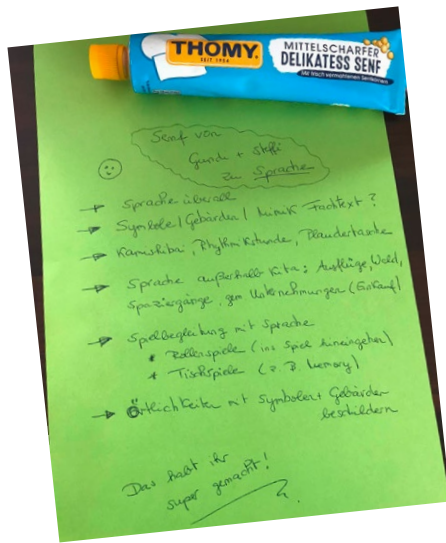 THOMY
SEIT 1934
MITTELSCHARFER
DELIKATESS SENF
Mit frisch vermahlenen Senfkörnern
Senf von
Gundi + Steffi
zu Sprache
Sprache überall
Symbole / Gebärden / Mimik Fachtext?
Kamishibai, Rhythmikstunde, Plaudertasche
Sprache außerhalb Kita: Ausflüge, Wald,
Spaziergänge, gem Unternehmungen (Einkauf)
Spielbegleitung mit Sprache
Rollenspiele (ins Spiel hineingehen)
Tischspiele (z. B. Memory)
Örtlichkeiten mit Symbolen + Gebärden
beschildern
Das habt ihr
super gemacht!